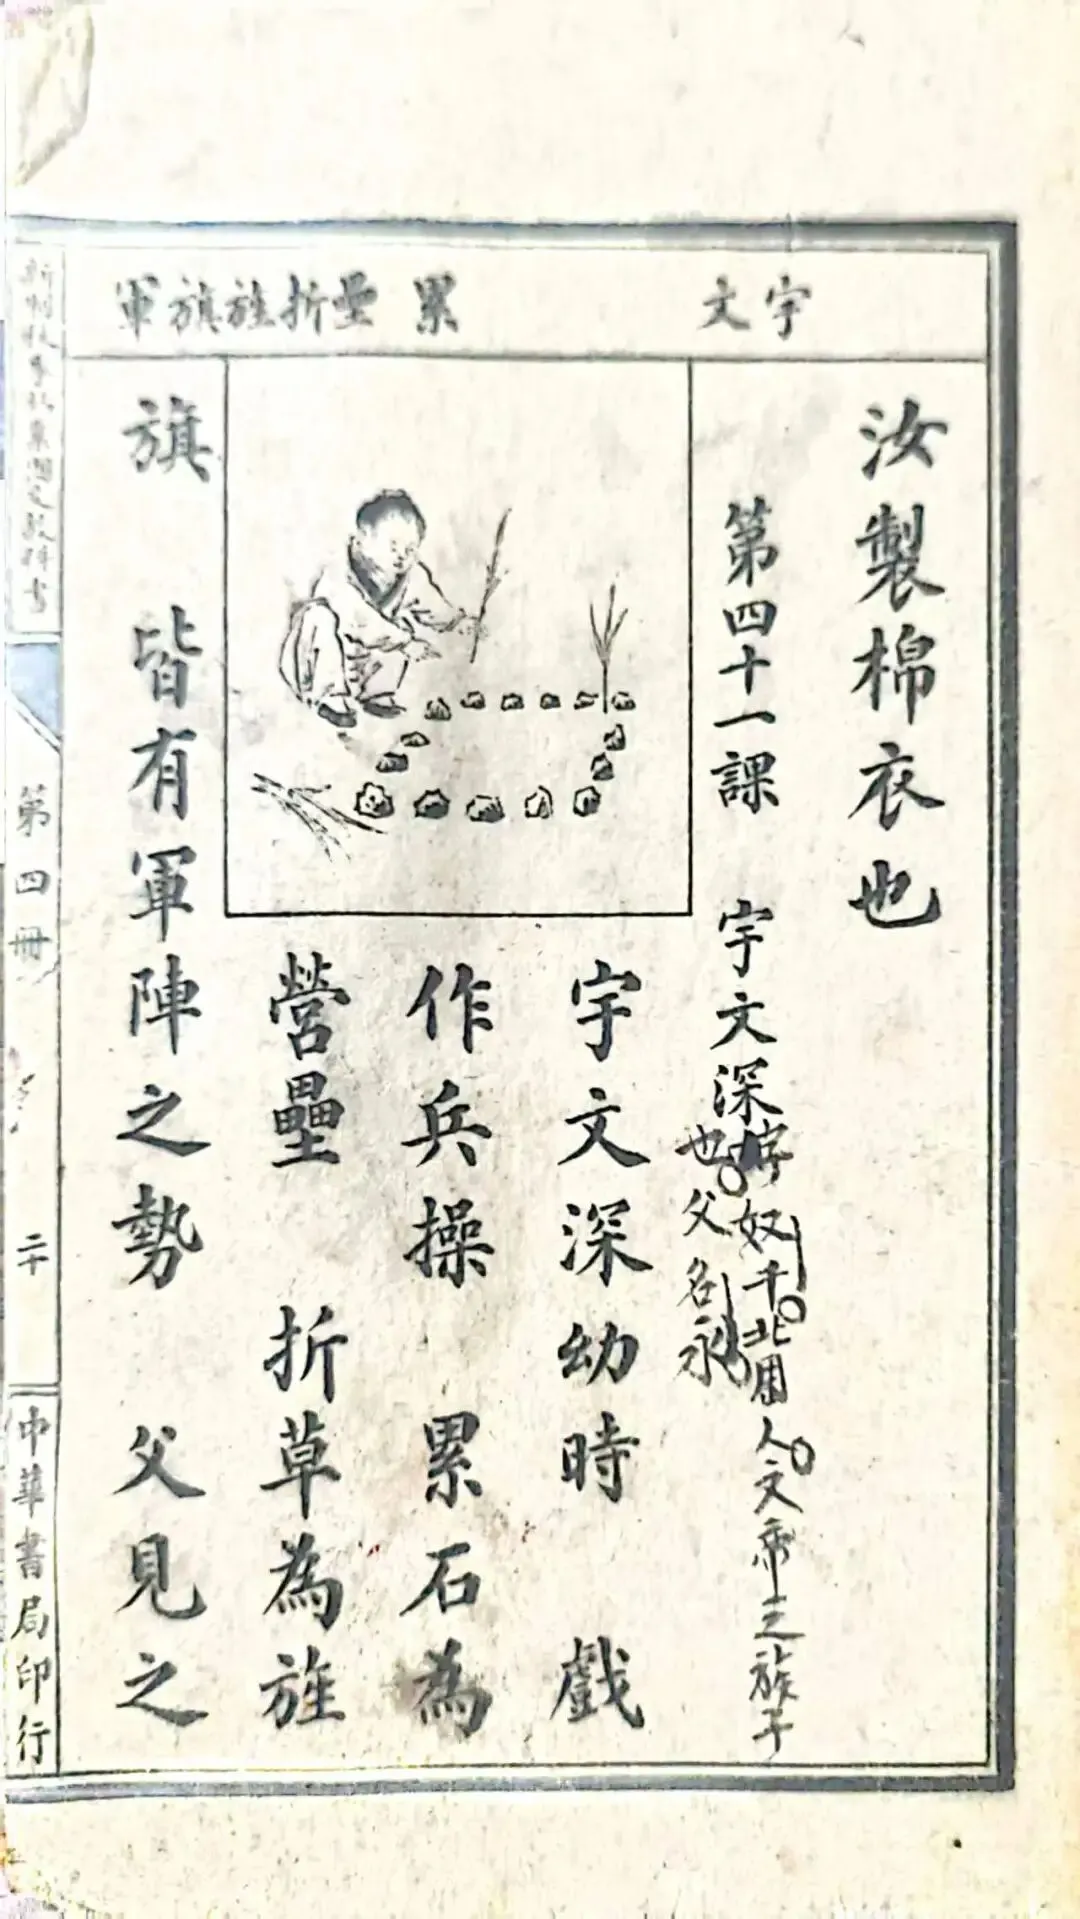 宇文
累 壘折旌旗軍
汝製棉衣也
第四十一課 宇文深
字奴干。北周人。文帝之族子
也。父名永
宇文深幼時 戲
作兵操 累石為
營壘 折草為旌
旗 皆有軍陣之勢 父見之
新制秋季始業國文教科書
第四冊
二十
中華書局印行